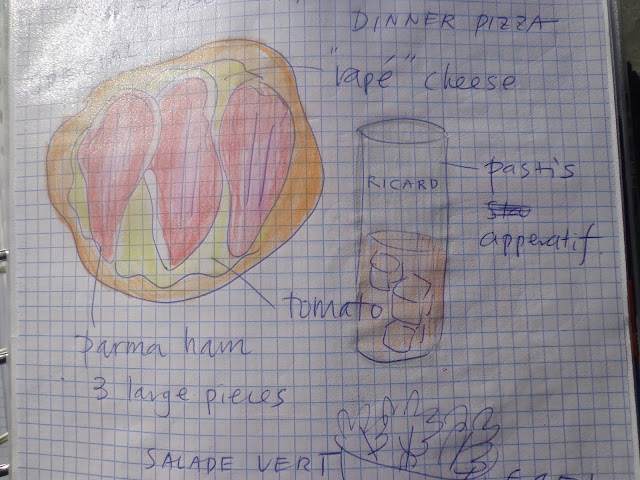 DINNER PIZZA
"rapé" cheese
RICARD
pastis
apperatif.
tomato
parma ham
3 large pieces
SALADE VERT